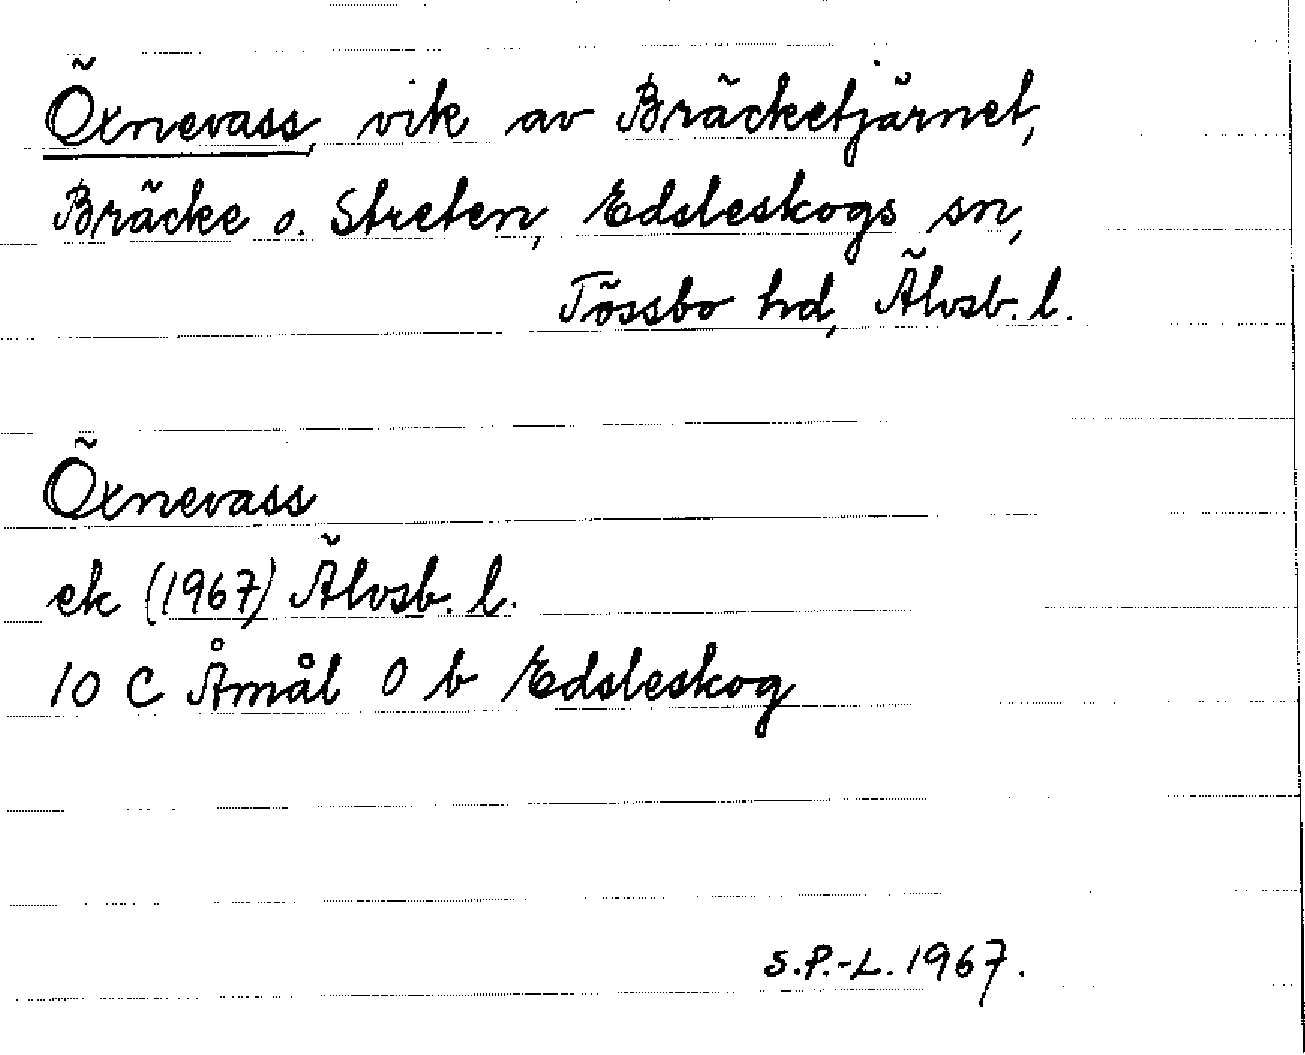 Öxnevass, vik av Bräcketjärnet,
Bräcke o. Streten, Edsleskogs sn,
Tössbo hd, Älvsb. l.
Öxnevass
ek (1967) Älvsb. l.
10 C Åmål O b Edsleskog
S.P.-L. 1967.